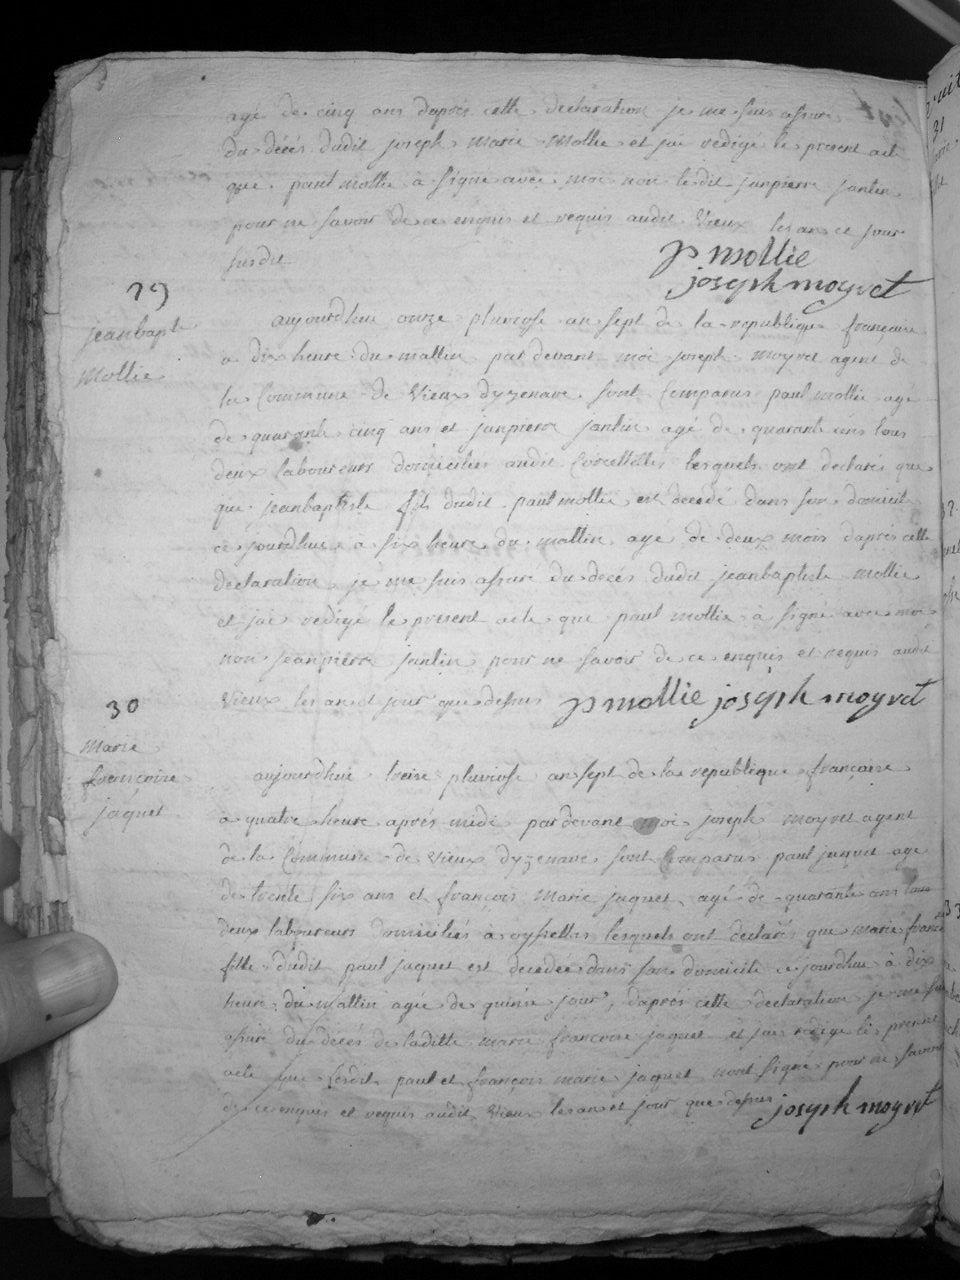 age de cinq ans daprés cette declaration je me suis assuré
du décés dudit joseph marie mollie et jai redigé le present acte
que paul mollie à signé avec moi non ledit janpierre jantin
pour ne savoir de ce enquis et requis audit Vieux les an et jour
susdit
p mollie
joseph moyret
29
jeanbapt
mollie
aujourdhui onze pluviose an sept de la republique françaire
a dix heure du mattin par devant moi joseph moyret agent de
la Commune de Vieux dyzenave sont Comparus paul mollie agé
de quarante cinq ans et janpierre jantin agé de quarante ans tous
deux laboureurs domiciliés audit lesquels ont declarés que
que jeanbaptiste fils dudit paul mollie est decedé dans son domicile
ce jourdhui à six heure du mattin age de deux mois daprés cette
declaration je me suis assuré du décés dudit jeanbaptiste mollie
et jai redigé le present acte que paul mollie à signé avec moi
non jeanpierre jantin pour ne savoir de ce enquis et requis audit
Vieux les an et jour que dessus p mollie joseph moyret
30
marie
françoire
jaquet
aujourdhui treire pluviose an sept de la republique françaire
à quatre heure aprés midi pardevant moi joseph moyret agent
de la Commune de Vieux dyzenave sont Comparus paul jaquet age
de trente six ans et françois marie jaquet agé de quarante ans tous
deux laboureurs domiciliés à oysselles lesquels ont declarés que marie france
fille dudit paul jaquet est decedée dans son domicile ce jourdhui à dix
heure du mattin agée de quinze jour, daprés cette declaration je me suis
assuré du décés de laditte marie françoire jaquet et jai redigé le present
acte que lesdit paul et françois marie jaquet nont signé pour ne savoir
de ce enquis et requis audit Vieux les an et jour que dessus joseph moyret